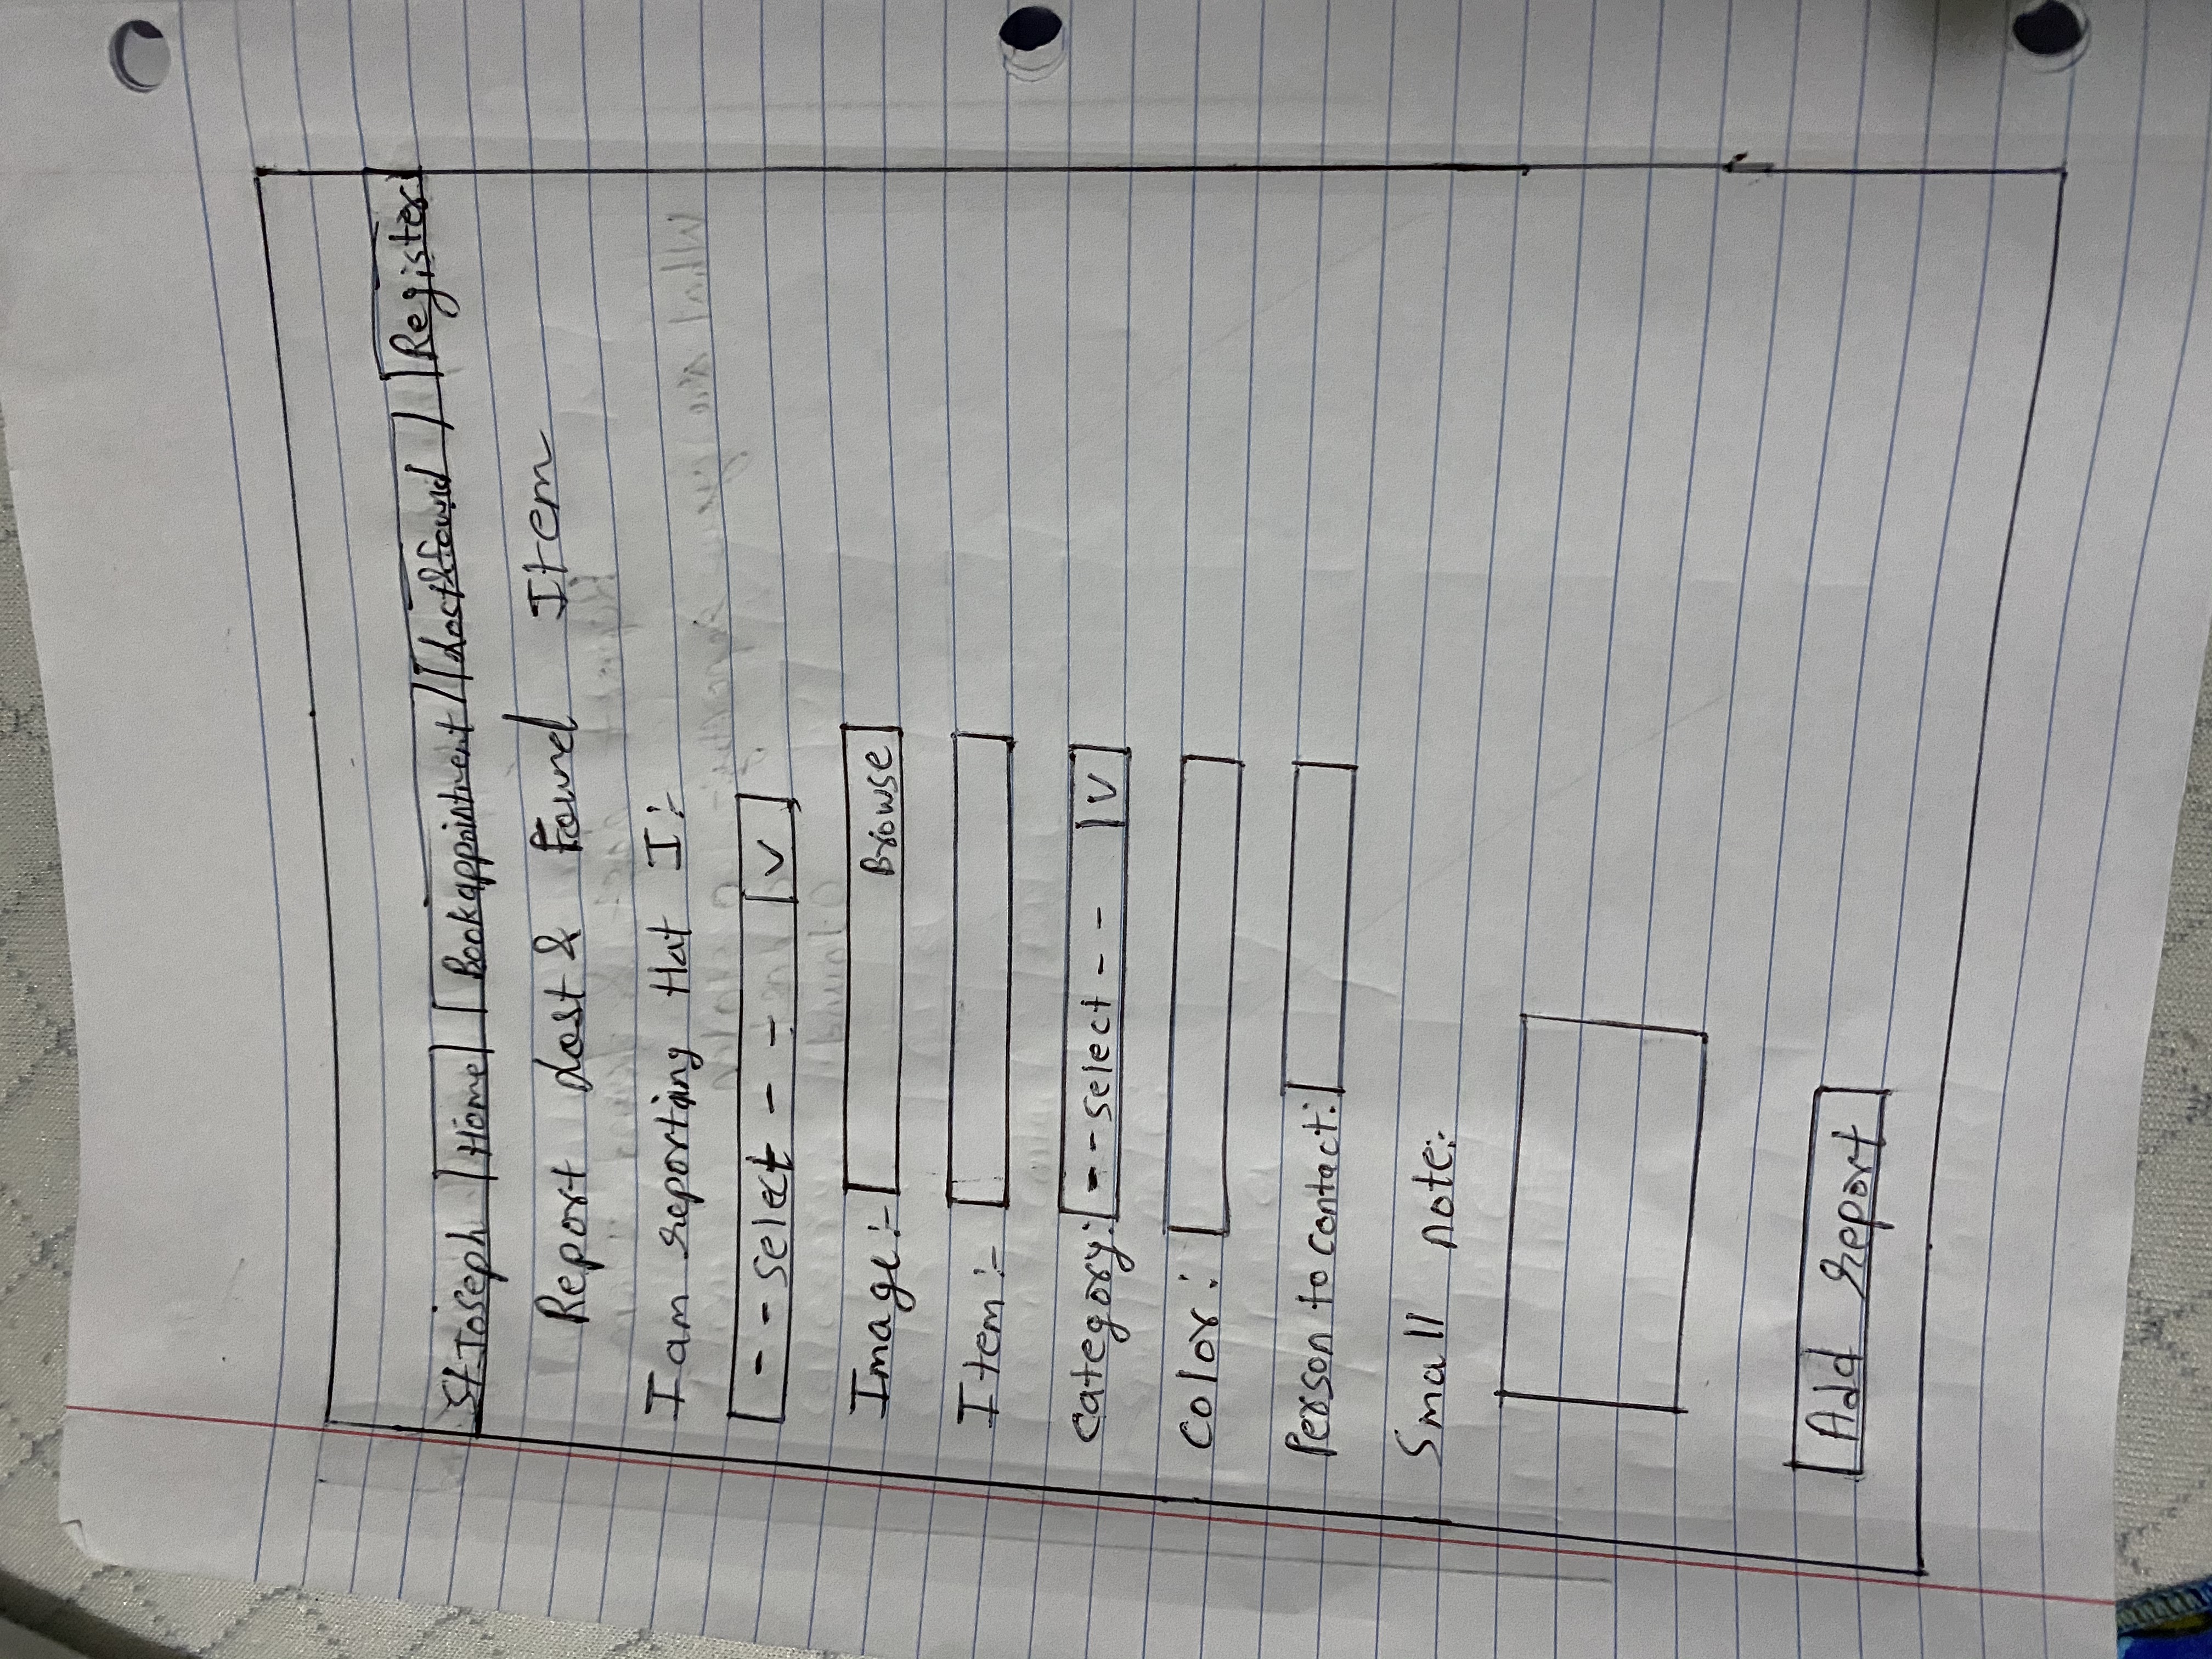 St. Joseph Home Book appointment Lost & found Register
Report Lost & Found Item
I am reporting that I :-
- - select - - V
Image :- Browse
Item :-
Category: - - select - - V
Color :
Person to contact:
Small note:-
Add report